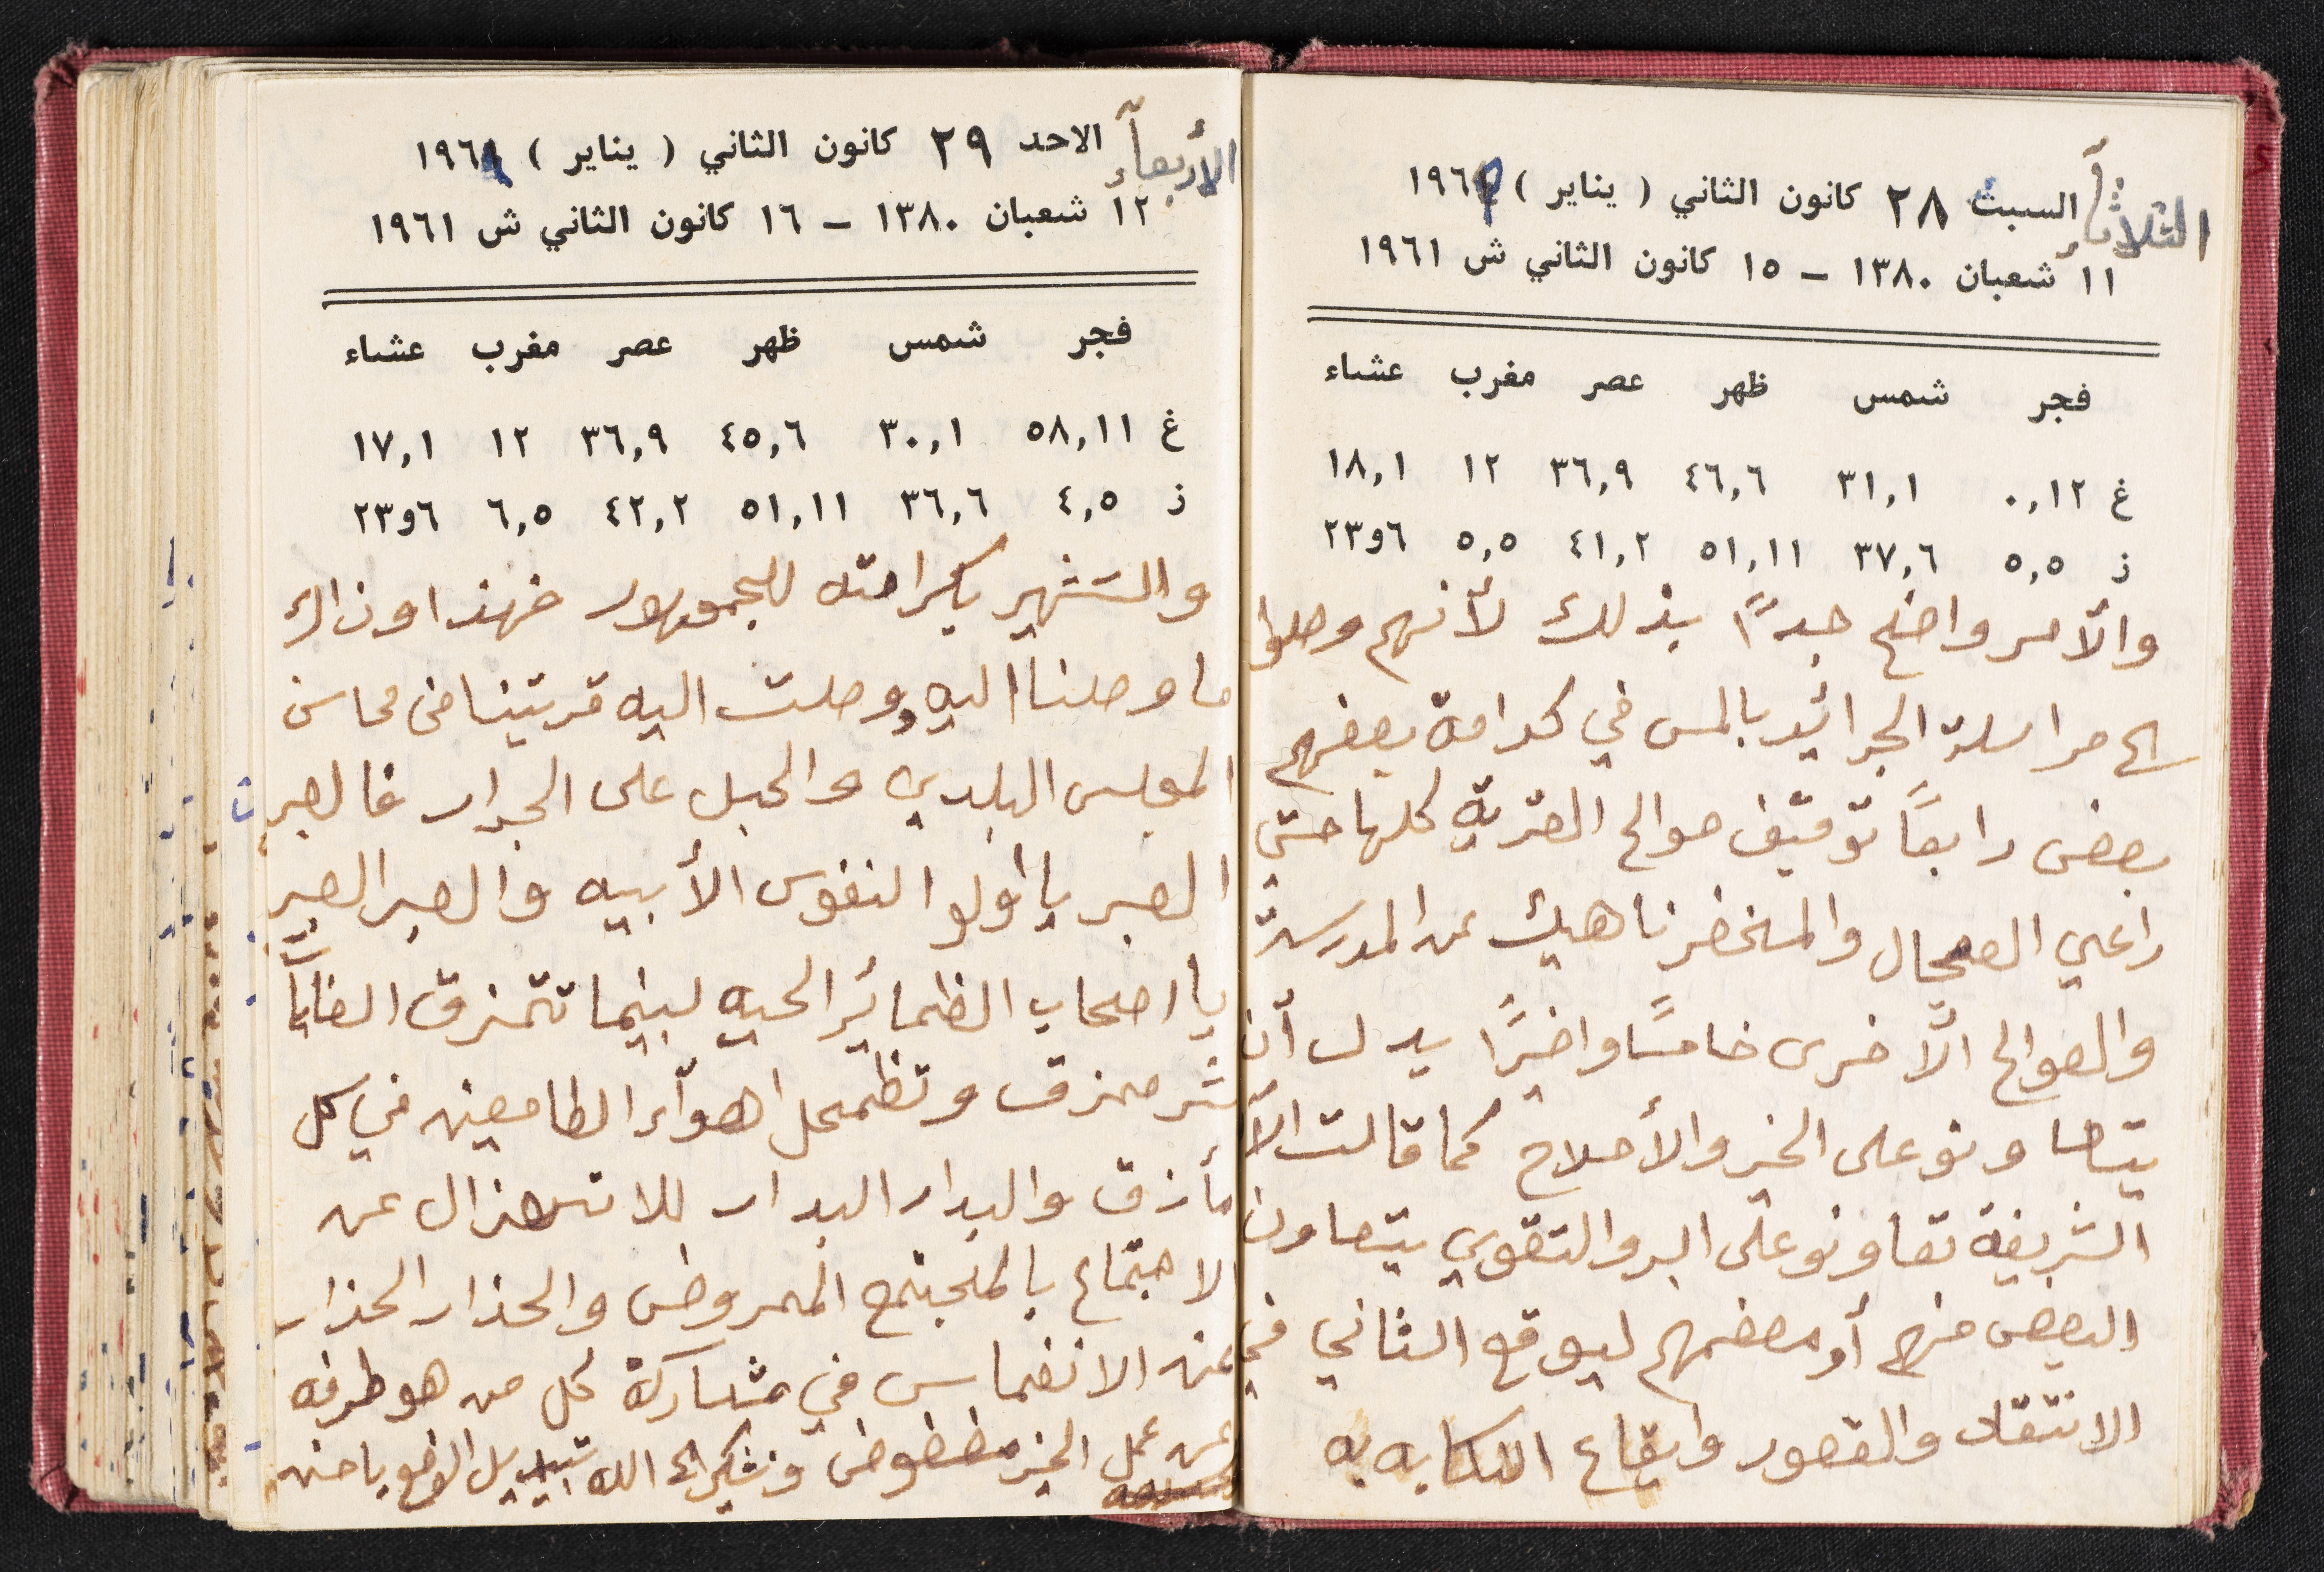 الثلاثاء السبت ٢٨ كانون الثاني ( يناير ) ١٩٦
١١ شعبان ١٣٨٠ – ١٥ كانون الثاني ش ١٩٦١
فجر شمس ظهر عصر مغرب عشاء
غ ٠,١٢ ٣١,١ ٤٦,٦ ٣٦,٩ ١٢ ١٨,١
ز ٥,٥ ٣٧,٦ ٥١,١١ ٤١,٢ ٥,٥ ٦و٢٣
والأمر واضح جداً بذلك لأنهم وصلوا
الى مراسلة الجرائد بالمس في كرامة بعضهم
بعض رابعاً توقيف صوالح القرية كلها حتى
راعي العجال والمخضر ناهيك عن المدرسة
والصوالح الأخرى خامساً واخيراً يدل أن
يتعاونو على الخير والأصلاح كما قالت الآ
الشريفة تعاونو على البر والتقوي يتعاون
البعض منهم أو معضمهم ليوقع الثاني في
الانتقاد والقصور وايقاع النكايه به
الأربعاء الاحد ٢٩ كانون الثاني ( يناير ) ١٩٦
١٢ شعبان ١٣٨٠ – ١٦ كانون الثاني ش ١٩٦١
فجر شمس ظهر عصر مغرب عشاء
غ ٥٨,١١ ٣٠,١ ٤٥,٦ ٣٦,٩ ١٢ ١٧,١
ز ٤,٥ ٣٦,٦ ٥١,١١ ٤٢,٢ ٦,٥ ٦و٢٣
والتشهير بكرامته للجمهور فهذا وذاك
ما وصلنا اليه ووصلت اليه قريتنا من محاسن
المجلس البلدي والحبل على الجرار فالصبر
الصبر يا اولو النفوس الأبيه والصبر الصبر
يا اصحاب الظمائر الحيه لبينما تتمزق الغايات
شر ممزق وتظمحل اهواء الطامعين في كل
مأزق والبدار البدار للانهزال عن
الاجتماع بالمجتمع الممروض والحذار الحذار
من الانغماس في مشاركة كل من هو طرفه
عن عمل الخير مغضوض ونشكي الى الله تبديل الوضع باحسن